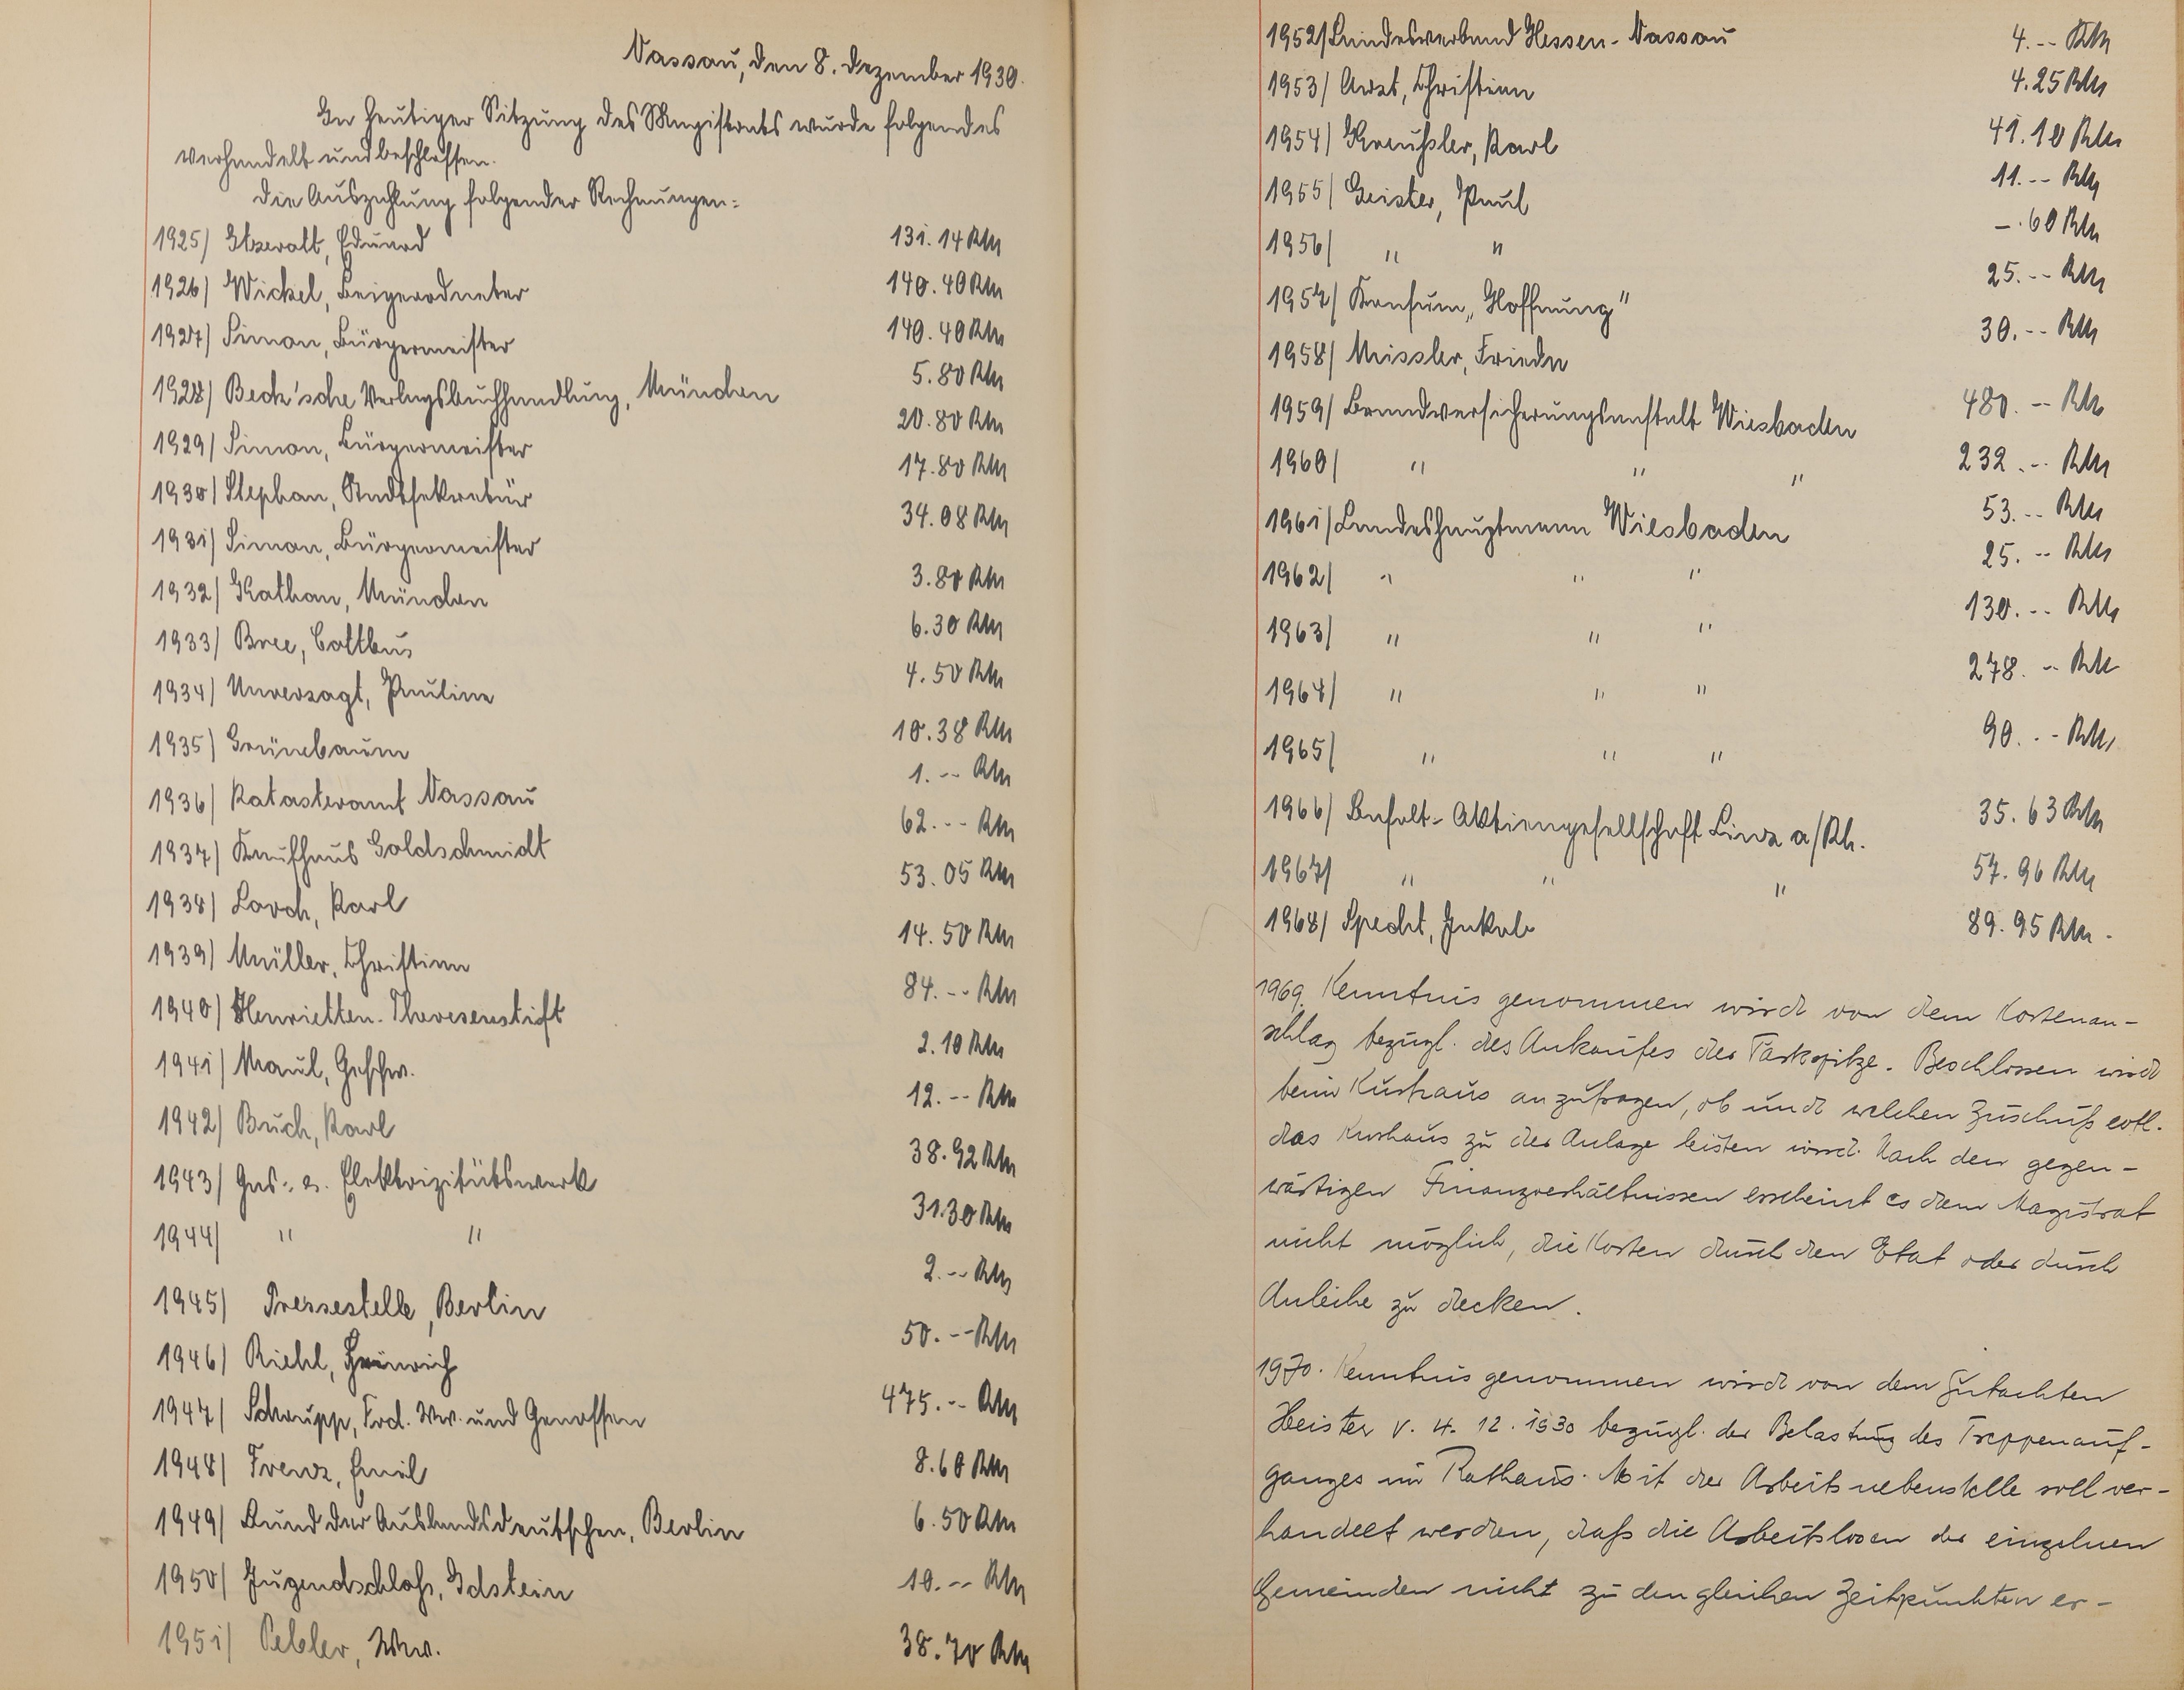 Nassau, den 8. Dezember 1930.
In heutiger Sitzung des Magistrats wurde folgendes
verhandelt und beschlossen.
Die Auszahlung folgender Rechnungen:
1925/ Etzerott, Eduard 131.14 RM
1926/ Wickel, Beigeordneter 140.40 RM
1927/ Simon, Bürgermeister 140.40 RM
1928/ Beck'sche Verlagsbuchhandlung, München 5.80 RM
1929/ Simon, Bürgermeister 20.80 RM
1930/ Stephan, Stadtsekretär 17.80 RM
1931/ Simon, Bürgermeister 34.08 RM
1932/ Kathan, München 3.80 RM
1933/ Bree, Cottbus 6.30 RM
1934/ Unverzagt, Pauline 4.50 RM
1935/ Grünebaum 10.38 RM
1936/ Katasteramt Nassau 1.-- RM
1937/ Kaufhaus Goldschmidt 62.-- RM
1938/ Lorch, Karl 53.05 RM
1939/ Müller, Christian 14.50 RM
1940/ Henrietten-Theresenstift 84.-- RM
1941/ Maul, Geschw. 2.10 RM
1942/ Buch, Karl 12.-- RM
1943/ Gas- u. Elektrizitätswerk 38.92 RM
1944/ " " 31.30 RM
1945/ Pressestelle, Berlin 2.-- RM
1946/ Riehl, Heinrich 50.-- RM
1947/ Schrupp, Frd. Ww. und Genossen 475.-- RM
1948/ Frenz, Emil 8.60 RM
1949/ Bund der Auslandsdeutschen, Berlin 6.50 RM
1950/ Jugendschloß, Idstein 10.-- RM
1951/ Pebler, Ww. 38.70 RM
1952/ Landesverband Hessen-Nassau 4.-- RM
1953/ Arzt, Christian 4.25 RM
1954/ Kreußler, Karl 41.10 RM
1955/ Geister, Paul 11.-- RM
1956/ " " -.60 RM
1957/ Konsum "Hoffnung" 25.-- RM
1958/ Missler, Frieda 30.-- RM
1959/ Brandversicherungsanstalt Wiesbaden 480.-- RM
1960/ " " " 232.-- RM
1961/ Landeshauptmann Wiesbaden 53.-- RM
1962/ " " " 25.-- RM
1963/ " " " 130.-- RM
1964/ " " " 278.-- RM
1965/ " " " 90.-- RM
1966/ Basalt-Aktiengesellschaft Linz a/Rh. 35.63 RM
1967/ " " " 57.96 RM
1968/ Specht, Jakob 89.95 RM.
1969. Kenntnis genommen wird von dem Kostenan-
schlag bezügl. des Ankaufes der Parkspitze. Beschlossen wird
beim Kurhaus anzufragen, ob und welchen Zuschuß evtl.
das Kurhaus zu der Anlage leisten wird. Nach den gegen-
wärtigen Finanzverhältnissen erscheint es dem Magistrat
nicht möglich, die Kosten durch den Etat oder durch
Anleihe zu decken.
1970. Kenntnis genommen wird von dem Gutachten
Heister v. 4. 12. 1930 bezügl. der Belastung des Treppenauf-
ganges im Rathaus. Mit der Arbeitsnebenstelle soll ver-
handelt werden, daß die Arbeitslosen der einzelnen
Gemeinden nicht zu den gleichen Zeitpunkten er-